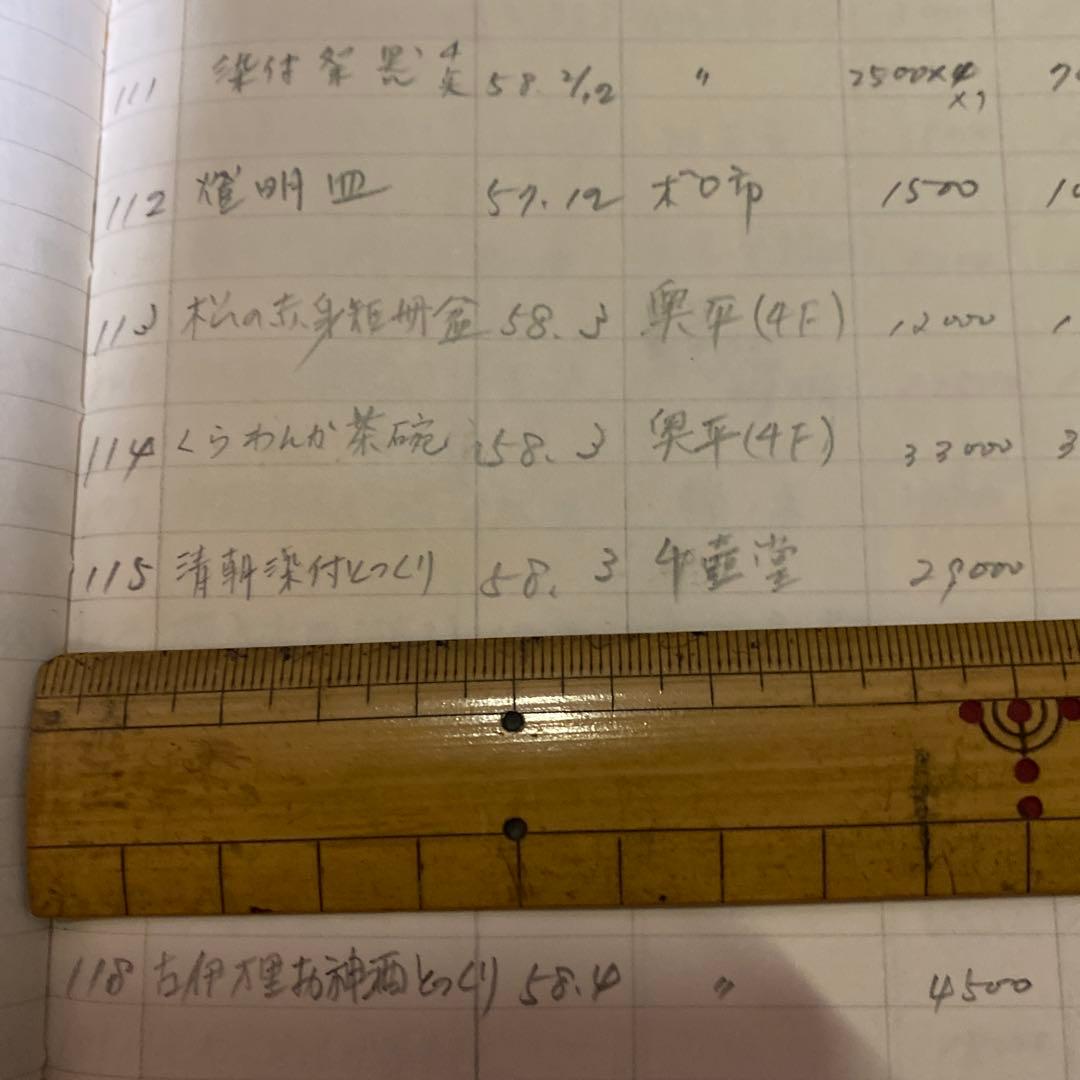 111 染付祭器 4点 58.2/12 〃 2500×4
112 燈明皿 57.12 ボロ市 1500
113 松の赤身短冊盆 58.3 奥平(4F) 12000
114 くらわんか茶碗 58.3 奥平(4F) 33000
115 清朝染付とっくり 58.3 壷堂 29000
118 古伊万里お神酒とっくり 58.4 〃 4500